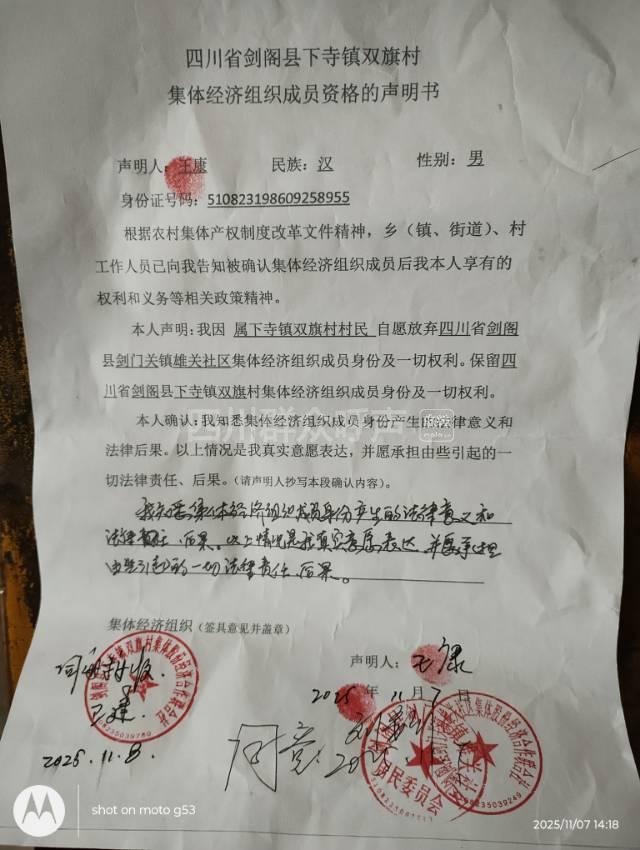 四川省剑阁县下寺镇双旗村
集体经济组织成员资格的声明书
声明人：王康 民族：汉 性别：男
身份证号码：510823198609258955
根据农村集体产权制度改革文件精神，乡（镇、街道）、村
工作人员已向我告知被确认集体经济组织成员后我本人享有的
权利和义务等相关政策精神。
本人声明：我因 属下寺镇双旗村村民 自愿放弃四川省剑阁
县剑门关镇雄关社区集体经济组织成员身份及一切权利。保留四
川省剑阁县下寺镇双旗村集体经济组织成员身份及一切权利。
本人确认：我知悉集体经济组织成员身份产生的法律意义和
法律后果。以上情况是我真实意愿表达，并愿承担由些引起的一
切法律责任、后果。（请声明人抄写本段确认内容）。
我知悉集体经济组织成员身份产生的法律意义和
法律责任、后果。以上情况是我真实意愿表达，并愿承担
由些引起的一切法律责任、后果。
集体经济组织（签具意见并盖章）
声明人：王康
2025年11月7日
2025.11.8.
村民委员会
四川群众呼声
shot on moto g53
2025/11/07 14:18